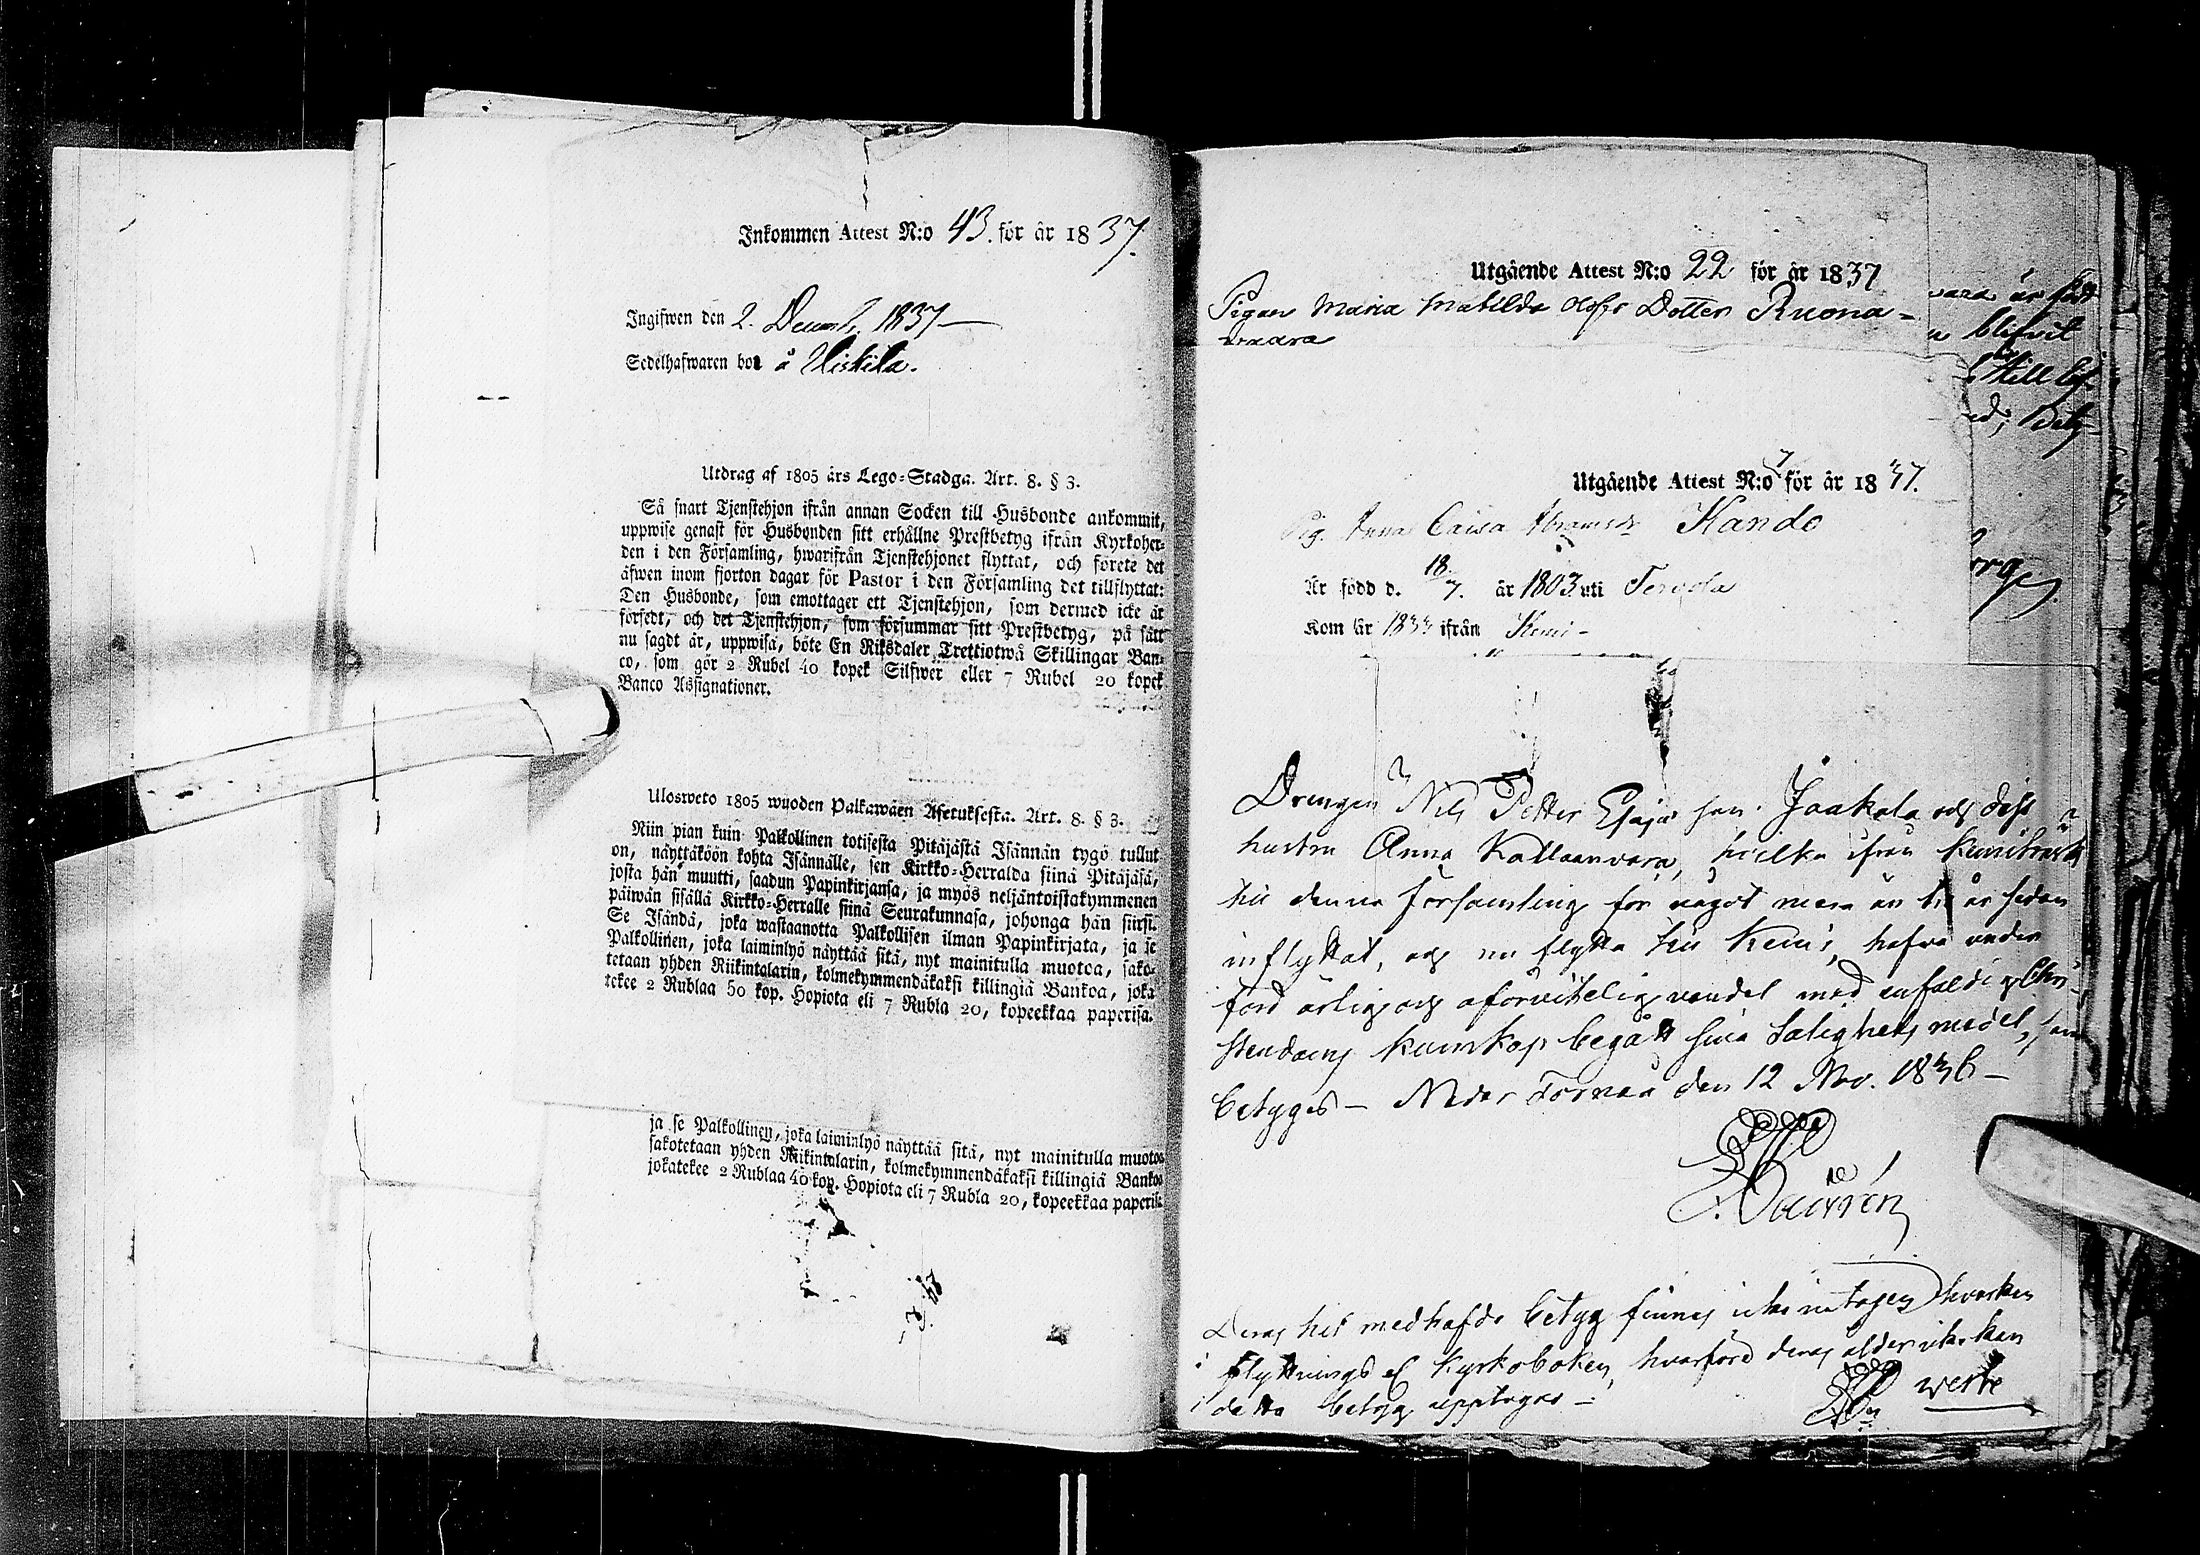 Inkommen Attest N:o 43. för år 1837.
Ingifwen den 2. Decemb. 1837
Sedelhafwaren bor å Uiskila.
Utdrag af 1805 års Lego-Stadga. Art. 8. § 3.
Så snart Tjenstehjon ifrån annan Socken till Husbonde ankommit,
uppwise genast för Husbonden sitt erhållne Prestbetyg ifrån Kyrkoher-
den i den Församling, hwarifrån Tjenstehjonet flyttat, och förete det
äfwen inom fjorton dagar för Pastor i den Församling det tillflyttat:
Den Husbonde, som emottager ett Tjenstehjon, som dermed icke är
försedt, och det Tjenstehjon, som försummar sitt Prestbetyg, på sätt
nu sagdt är, uppwisa, böte En Riksdaler Trettiotwå Skillingar Ban-
co, som gör 2 Rubel 40 kopek Silfwer eller 7 Rubel 20 kopek
Banco Assignationer.
Ulosweto 1805 wuoden Palkawäen Asetuksesta. Art. 8. § 3.
Niin pian kuin Palkollinen toisesta Pitäjästä Isännän tygö tullut
on, näyttäköön kohta Isännälle, sen Kirkko-Herralda siinä Pitäjäsä,
josta hän muutti, saadun Papinkirjansa, ja myös neljäntoistakymmenen
päiwän sisällä Kirkko-Herralle siinä Seurakunnasa, johonga hän siirsi.
Se Isändä, joka wastaanotta Palkollisen ilman Papinkirjata, ja se
Palkollinen, joka laiminlyö näyttää sitä, nyt mainitulla muotoa, sako-
tetaan yhden Riikintalarin, kolmekymmendäkaksi killingiä Bankoa, joka
tekee 2 Rublaa 50 kop. Hopiota eli 7 Rubla 20, kopeekkaa paperisa.
ja se Palkollinen, joka laiminlyö näyttää sitä, nyt mainitulla muotoa
sakotetaan yhden Riikintalarin, kolmekymmendäkaksi killingiä Bankoa
jokatekee 2 Rublaa 40 kop. Hopiota eli 7 Rubla 20, kopeekkaa paperis.
Utgående Attest N:o 22 för år 1837
Pigan Maria Matilda Olofs Dotter Ruona-
waara
wara är född
blifvit
till
Utgående Attest N:o 7 för år 1837.
Pig. Anna Caisa Abramsdr Kando
Är född d. 18/7. år 1803 uti Tervola
Kom år 1833 ifrån Kemi-
Drengen Nils Petter Esajas son Jaakola och dess
hustru Anna Kallaanvara, hvilka ifrån
till denna Församling för något mera än tre år sedan
inflyttat, och nu flytta till Kemi, hafva under
förd ärlig och oförvitelig vandel med enfaldig Chri-
stendoms kunskap begått sina Salighets medel, som
betygas – Neder Torneå den 12 Nov. 1836 –
Deras hit medhafde betyg finnes icke intagen hvarken
i flyttnings el. Kyrkoboken, hvarföre deras ålder icke kan
i detta betyg upptagas –